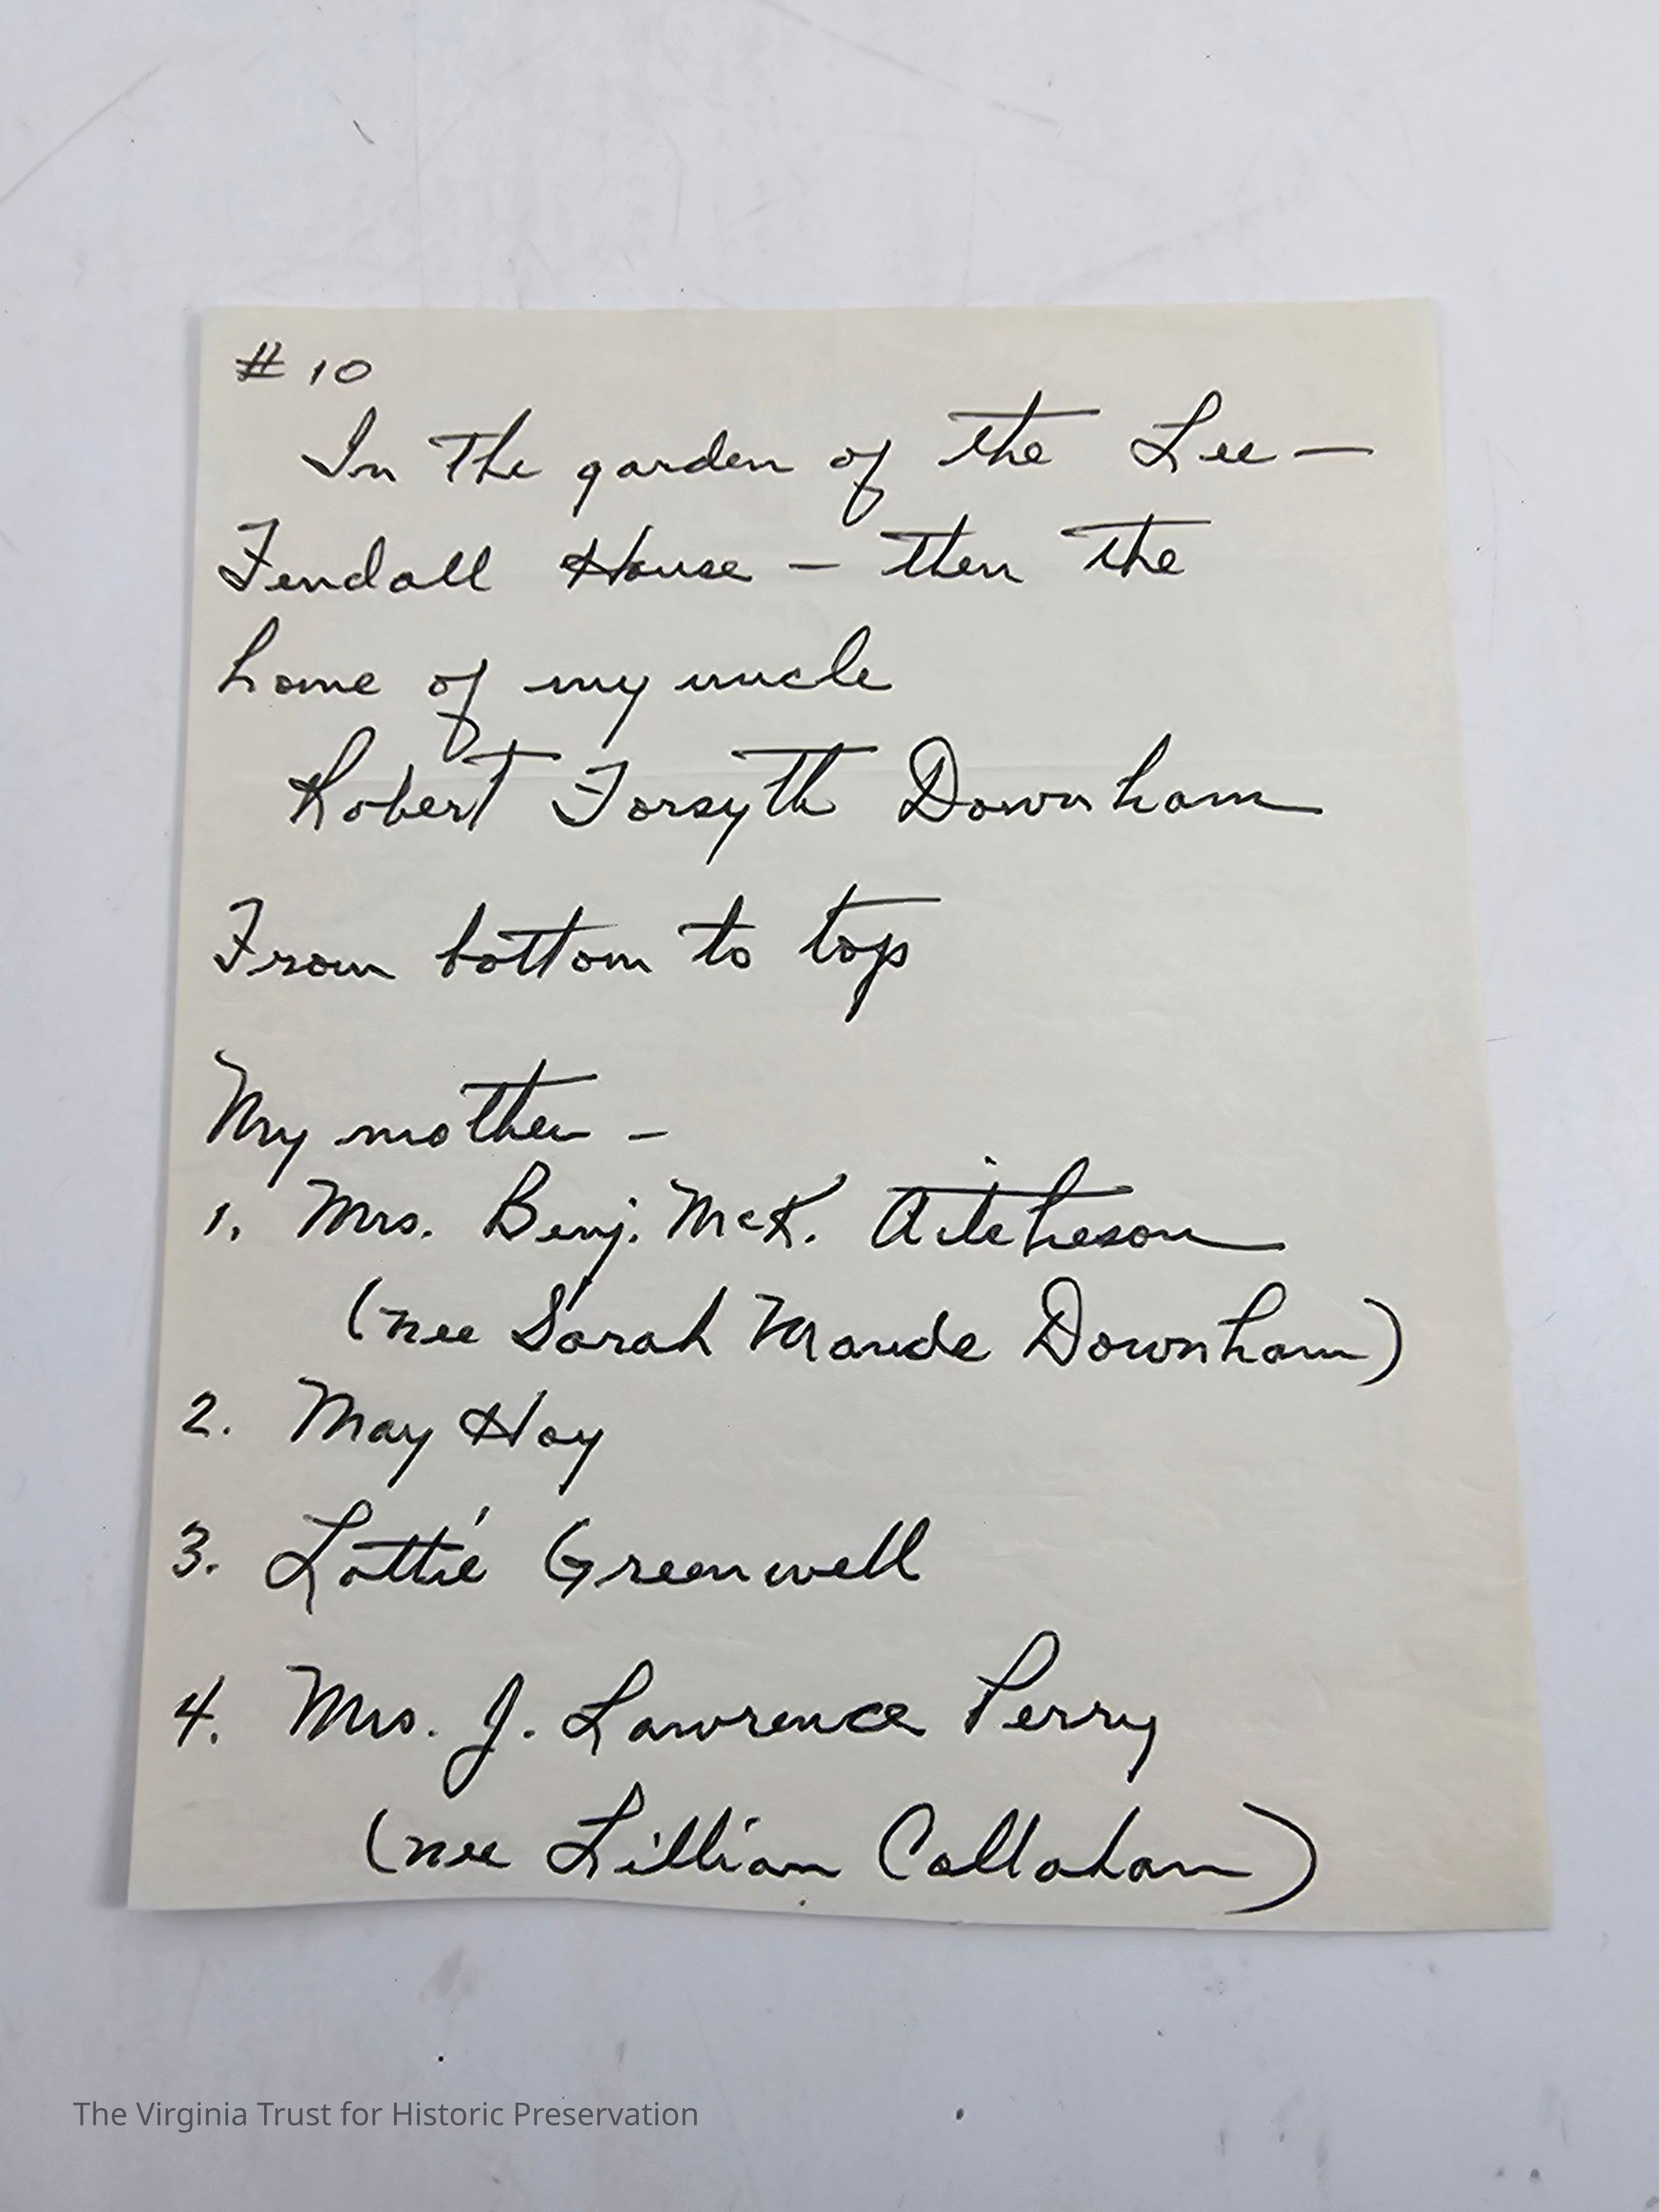 # 10
In The garden of the Lee—
Fendall House — then the
home of my uncle
Robert Forsyth Downham
From bottom to top
My mother —
1. Mrs. Benj. McK. Aitcheson
(nee Sarah Maude Downham)
2. May Hoy
3. Lottie Greenwell
4. Mrs. J. Lawrence Perry
(nee Lillian Callahan)
The Virginia Trust for Historic Preservation